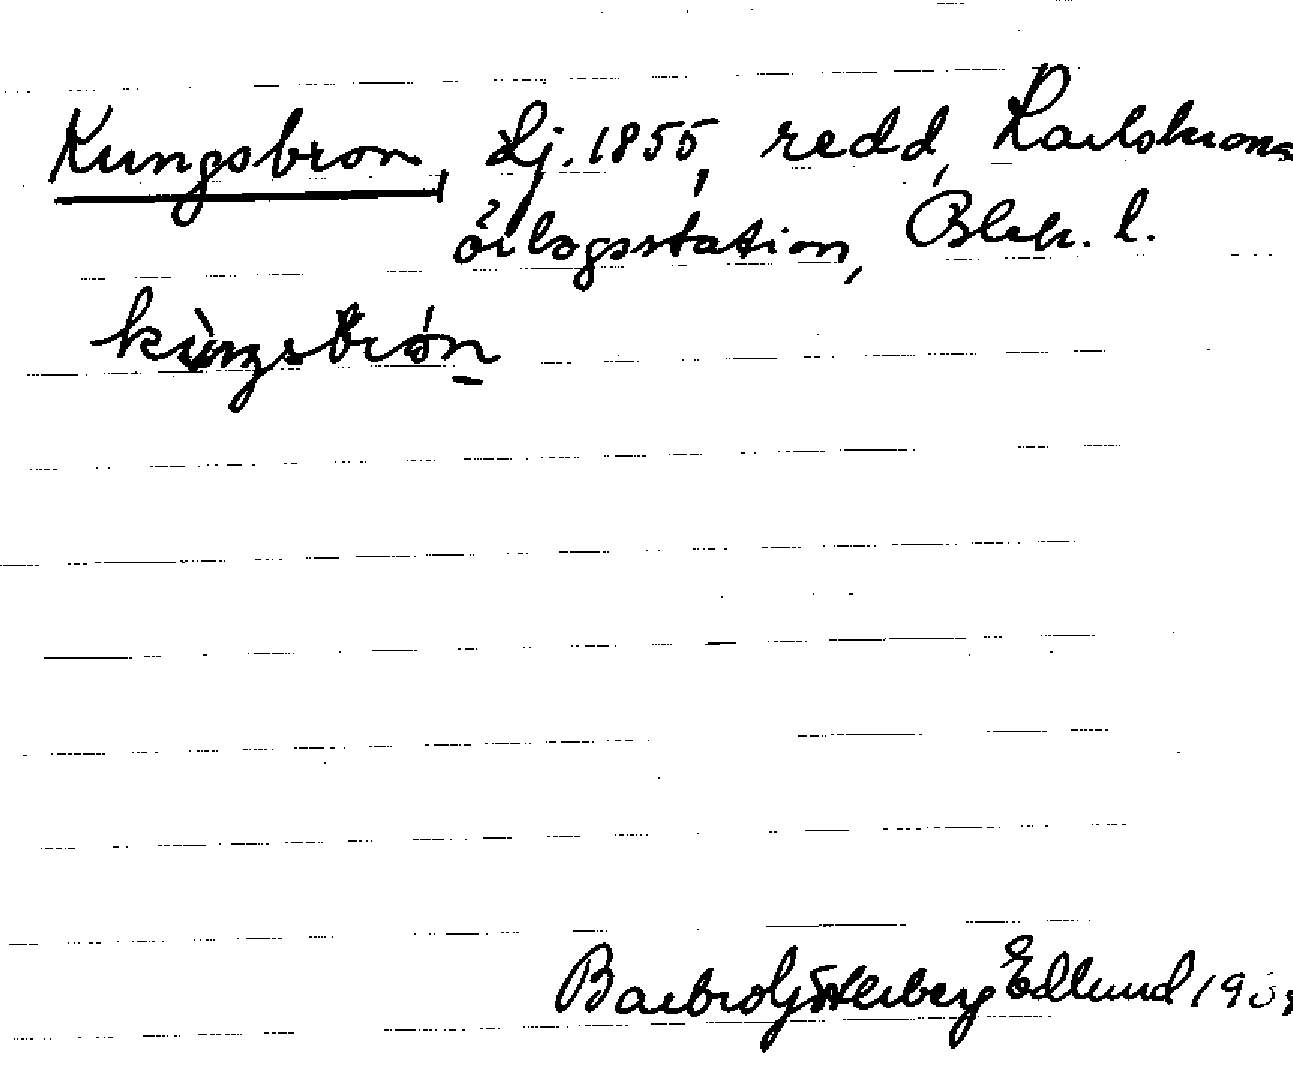 Kungsbron, Lj. 1855, redd, Karlskrona
örlogsstation, Blek. l.
kùŋsbrón
Barbro Edlund